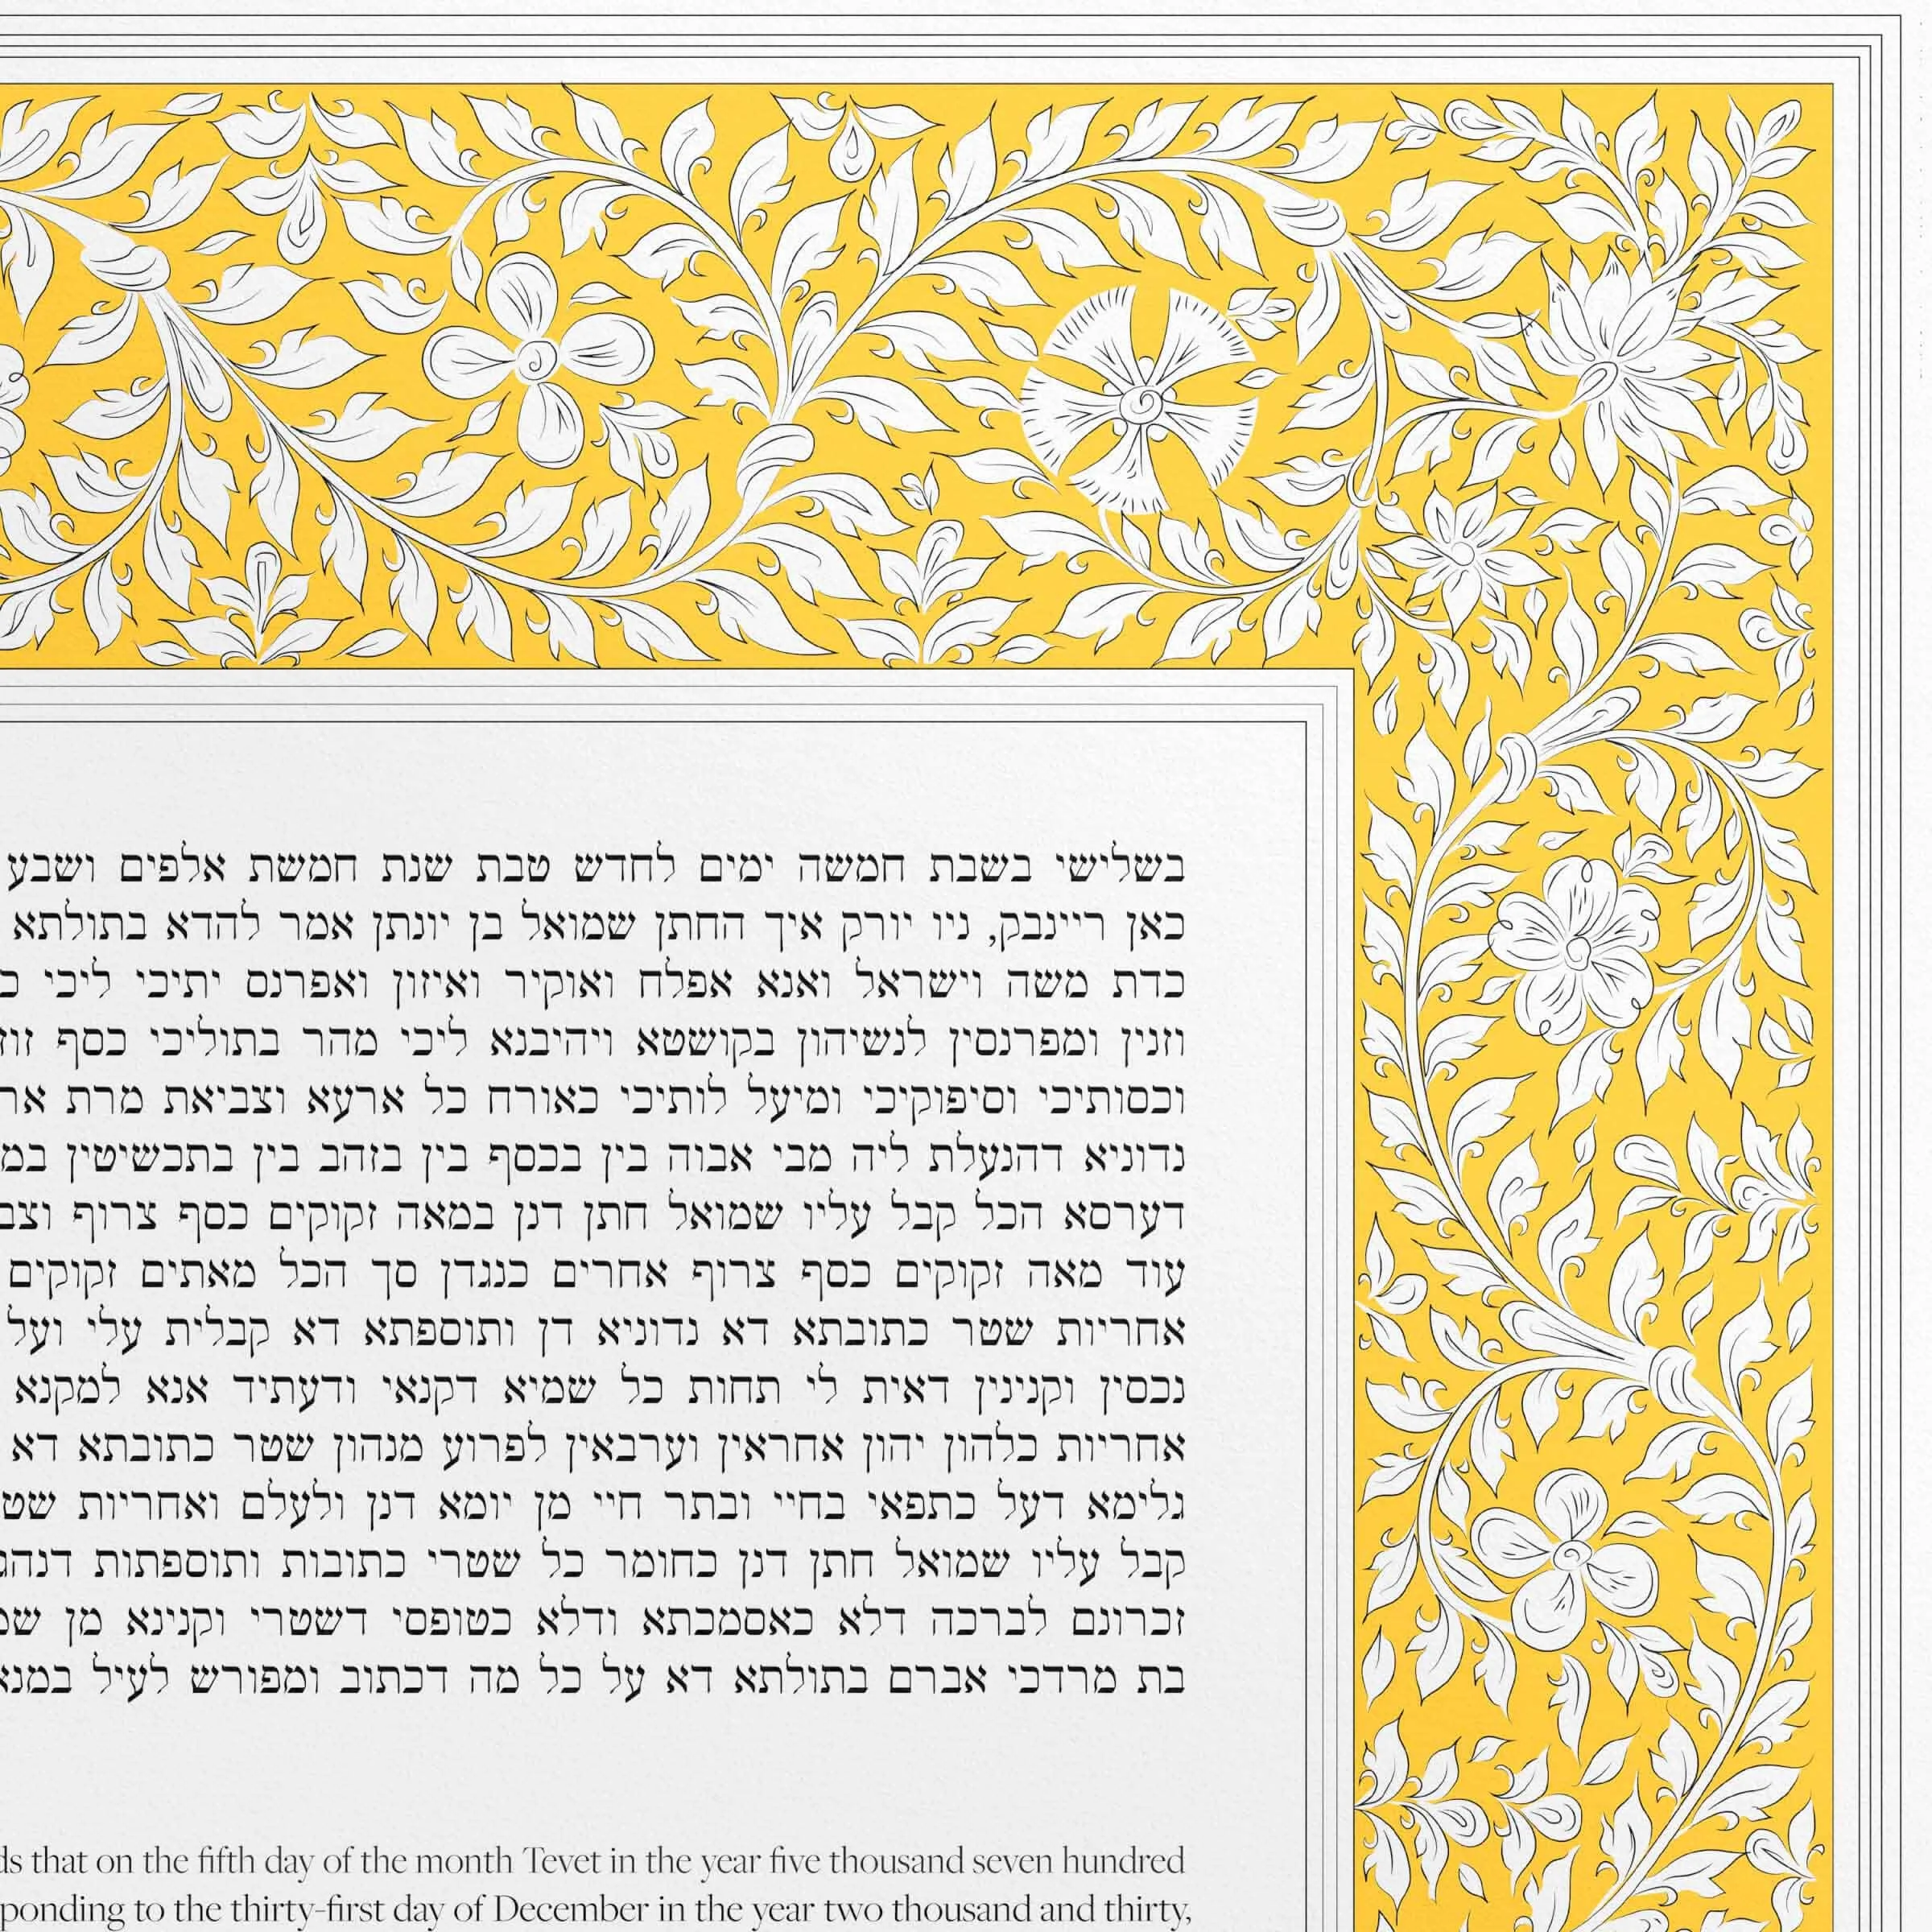 בשלישי בשבת חמשה ימים לחדש טבת שנת חמשת אלפים ושבע
כאן ריינבק, ניו יורק איך החתן שמואל בן יונתן אמר להדא בתולתא
כדת משה וישראל ואנא אפלח ואוקיר ואיזון ואפרנס יתיכי ליכי
וזנין ומפרנסין לנשיהון בקושטא ויהיבנא ליכי מהר בתוליכי כסף
וכסותיכי וסיפוקיכי ומיעל לותיכי כאורח כל ארעא וצביאת מרת
נדוניא דהנעלת ליה מבי אבוה בין בכסף בין בזהב בין בתכשיטין
דערסא הכל קבל עליו שמואל חתן דנן במאה זקוקים כסף צרוף
עוד מאה זקוקים כסף צרוף אחרים כנגדן סך הכל מאתים זקוקים
אחריות שטר כתובתא דא נדוניא דן ותוספתא דא קבלית עלי ועל
נכסין וקנינין דאית לי תחות כל שמיא דקנאי ודעתיד אנא למקנא
אחריות כלהון יהון אחראין וערבאין לפרוע מנהון שטר כתובתא דא
גלימא דעל כתפאי בחיי ובתר חיי מן יומא דנן ולעלם ואחריות
קבל עליו שמואל חתן דנן כחומר כל שטרי כתובות ותוספתות
זכרונם לברכה דלא כאסמכתא ודלא כטופסי דשטרי וקנינא מן
בת מרדכי אברם בתולתא דא על כל מה דכתוב ומפורש לעיל
that on the fifth day of the month Tevet in the year five thousand seven hundred
to the thirty-first day of December in the year two thousand and thirty,